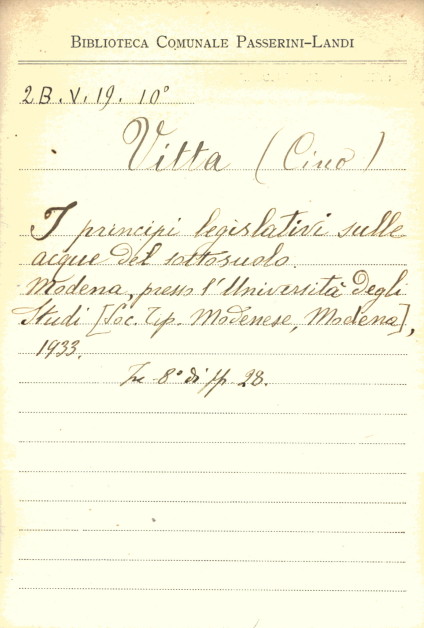 BIBLIOTECA COMUNALE PASSERINI-LANDI
2B.V.19.10°
Vitta (Cino)
I principi legislativi sulle
acque del sottosuolo.
Modena, presso l'Università degli
Studi [Soc. Tip. Modenese, Modena],
1933.
In 8° di pp. 28.